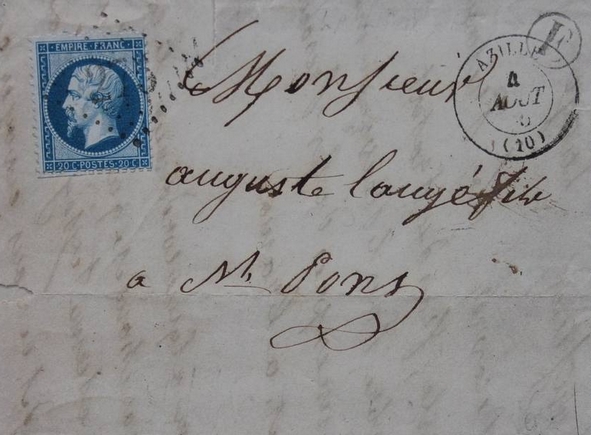 EMPIRE FRANC
20 C POSTES 20 C
AZILLE
4
AOUT
(10)
Monsieur
auguste
a St Pons